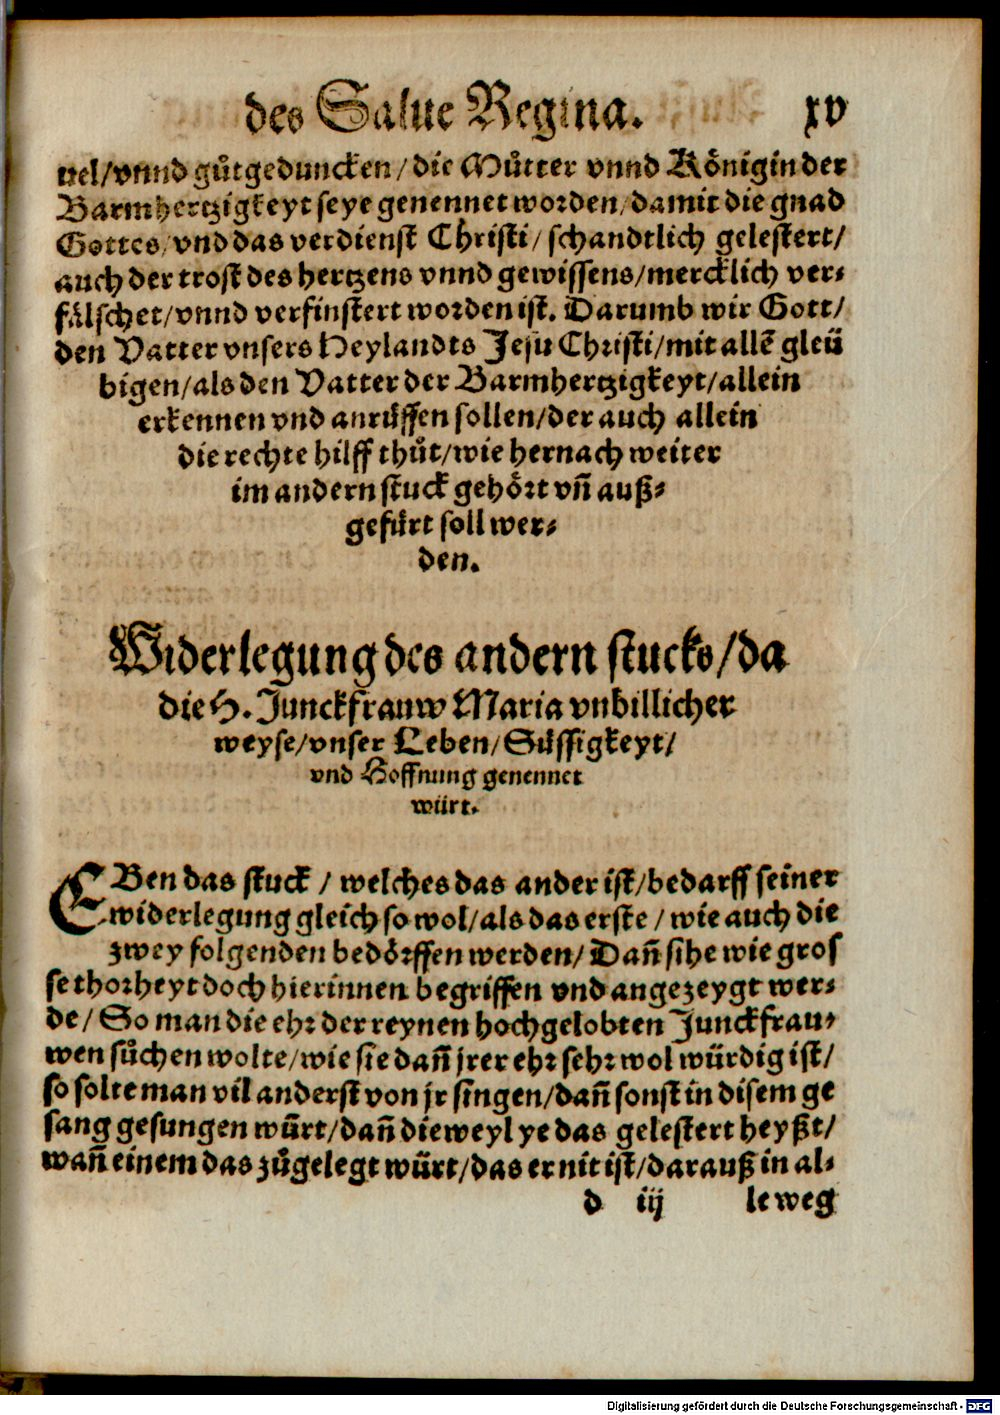 des Salue Regina. xv
uel/vnnd gůtgeduncken/die Můtter vnnd Königin der
Barmhertzigkeyt seye genennet worden/damit die gnad
Gottes/vnd das verdienst Christi/schandtlich gelestert/
auch der trost des hertzens vnnd gewissens/mercklich ver⸗
fälschet/vnnd verfinstert worden ist. Darumb wir Gott/
den Vatter vnsers Heylandts Jesu Christi/mit allẽ gleü
bigen/als den Vatter der Barmhertzigkeyt/allein
erkennen vnd anrůffen sollen/der auch allein
die rechte hilff thůt/wie hernach weiter
im andern stuck gehört vñ auß⸗
gefürt soll wer⸗
den.
Widerlegung des andern stucks/da
die H. Junckfrauw Maria vnbillicher
weyse/vnser Leben/Süssigkeyt/
vnd Hoffnung genennet
würt.
EBen das stuck / welches das ander ist/bedarff seiner
widerlegung gleich so wol/als das erste / wie auch die
zwey folgenden bedörffen werden/ Dañ sihe wie gros
se thorheyt doch hierinnen begriffen vnd angezeygt wer⸗
de/ So man die ehr der reynen hochgelobten Junckfrau⸗
wen sůchen wolte/wie sie dañ jrer ehr sehr wol würdig ist/
so solte man vil anderst von jr singen/dañ sonst in disem ge
sang gesungen würt/dañ dieweyl ye das gelestert heyßt/
wañ einem das zůgelegt würt/das er nit ist/darauß in al⸗
d iij le weg
Digitalisierung gefördert durch die Deutsche Forschungsgemeinschaft - DFG